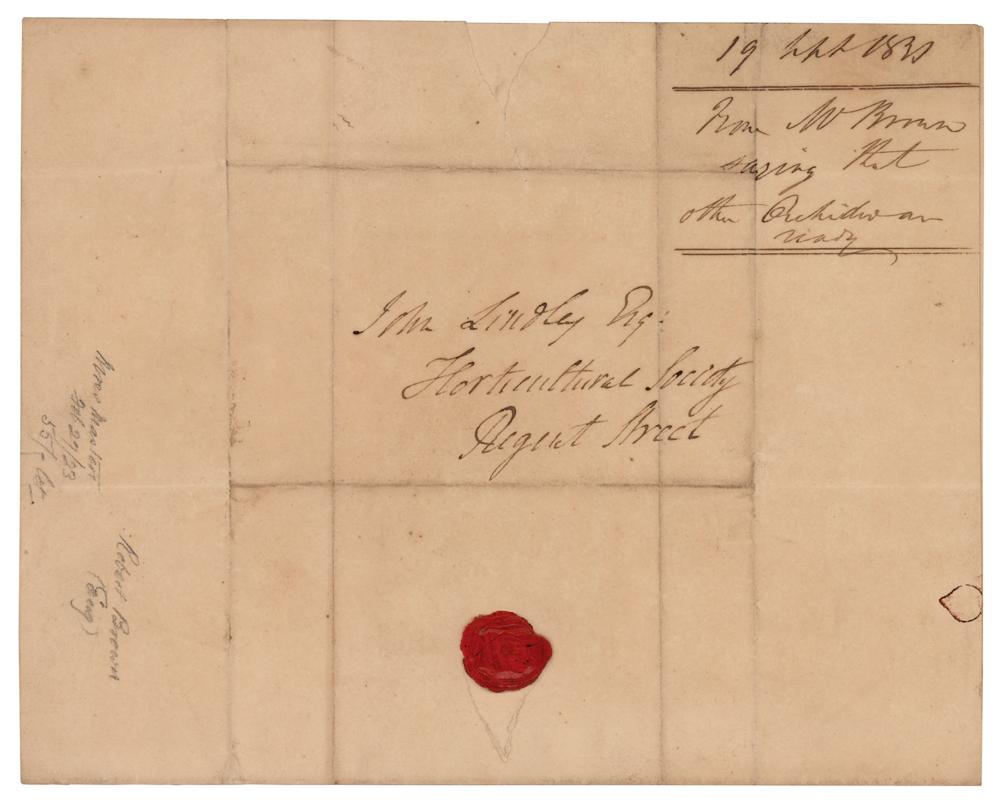 19 Sept 1831
From Mr Brown
saying that
other Orchideae are
ready
John Lindley Esq:
Horticultural Society
Regent Street
Masters
27/23
55/-
Robert Brown
(Eng)